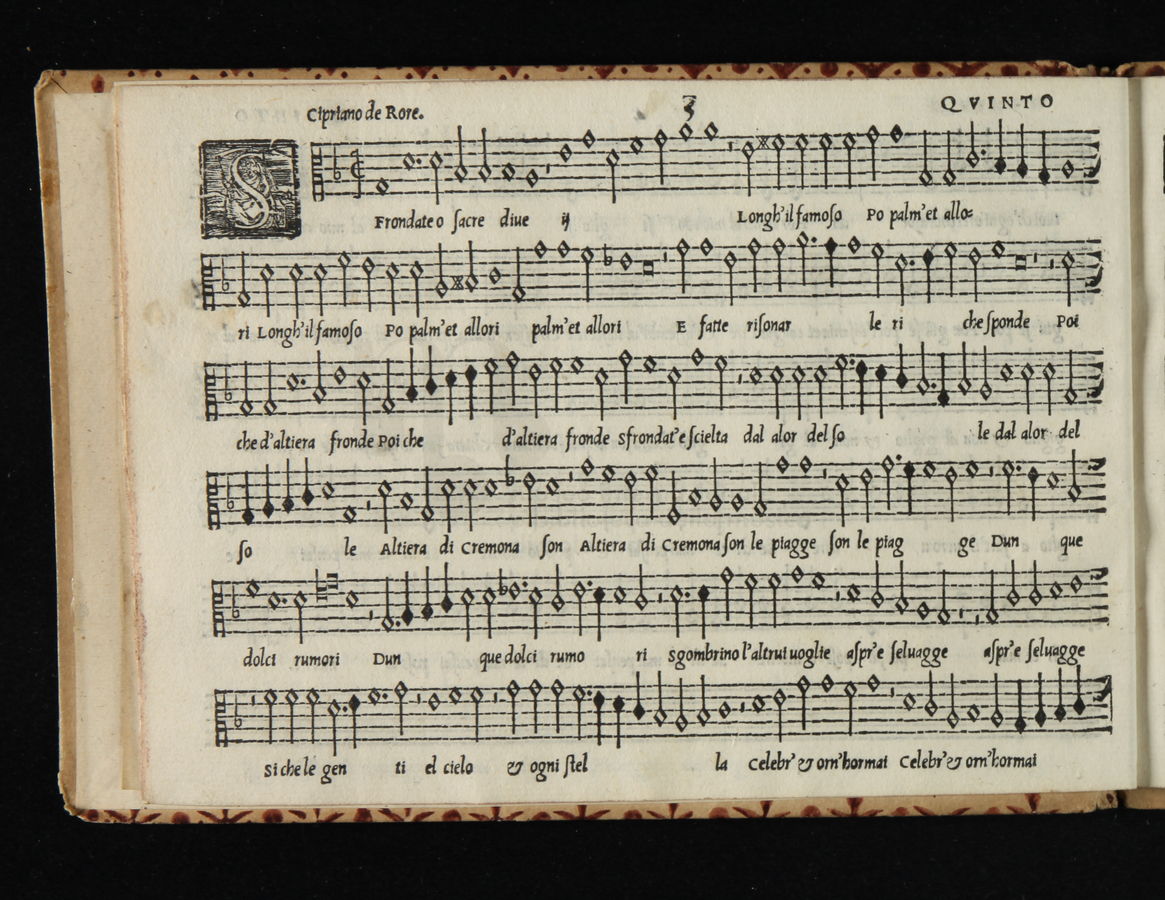 Cipriano de Rore. 3 QVINTO
S Frondate o ſacre diue ij Longh'il famoſo Po palm'et allo=
ri Longh'il famoſo Po palm'et allori palm'et allori E fatte riſonar le ri che ſponde Poi
che d'altiera fronde Poi che d'altiera fronde Sfrondat'e ſcielta dal alor del ſo le dal alor del
ſo le Altiera di Cremona ſon Altiera di Cremona ſon le piagge ſon le piag ge Dun que
dolci rumori Dun que dolci rumo ri Sgombrino l'altrui uoglie aſpr'e ſeluagge aſpr'e ſeluagge
Si che le gen ti el cielo & ogni ſtel la Celebr' & orn'hormai Celebr' & orn'hormai